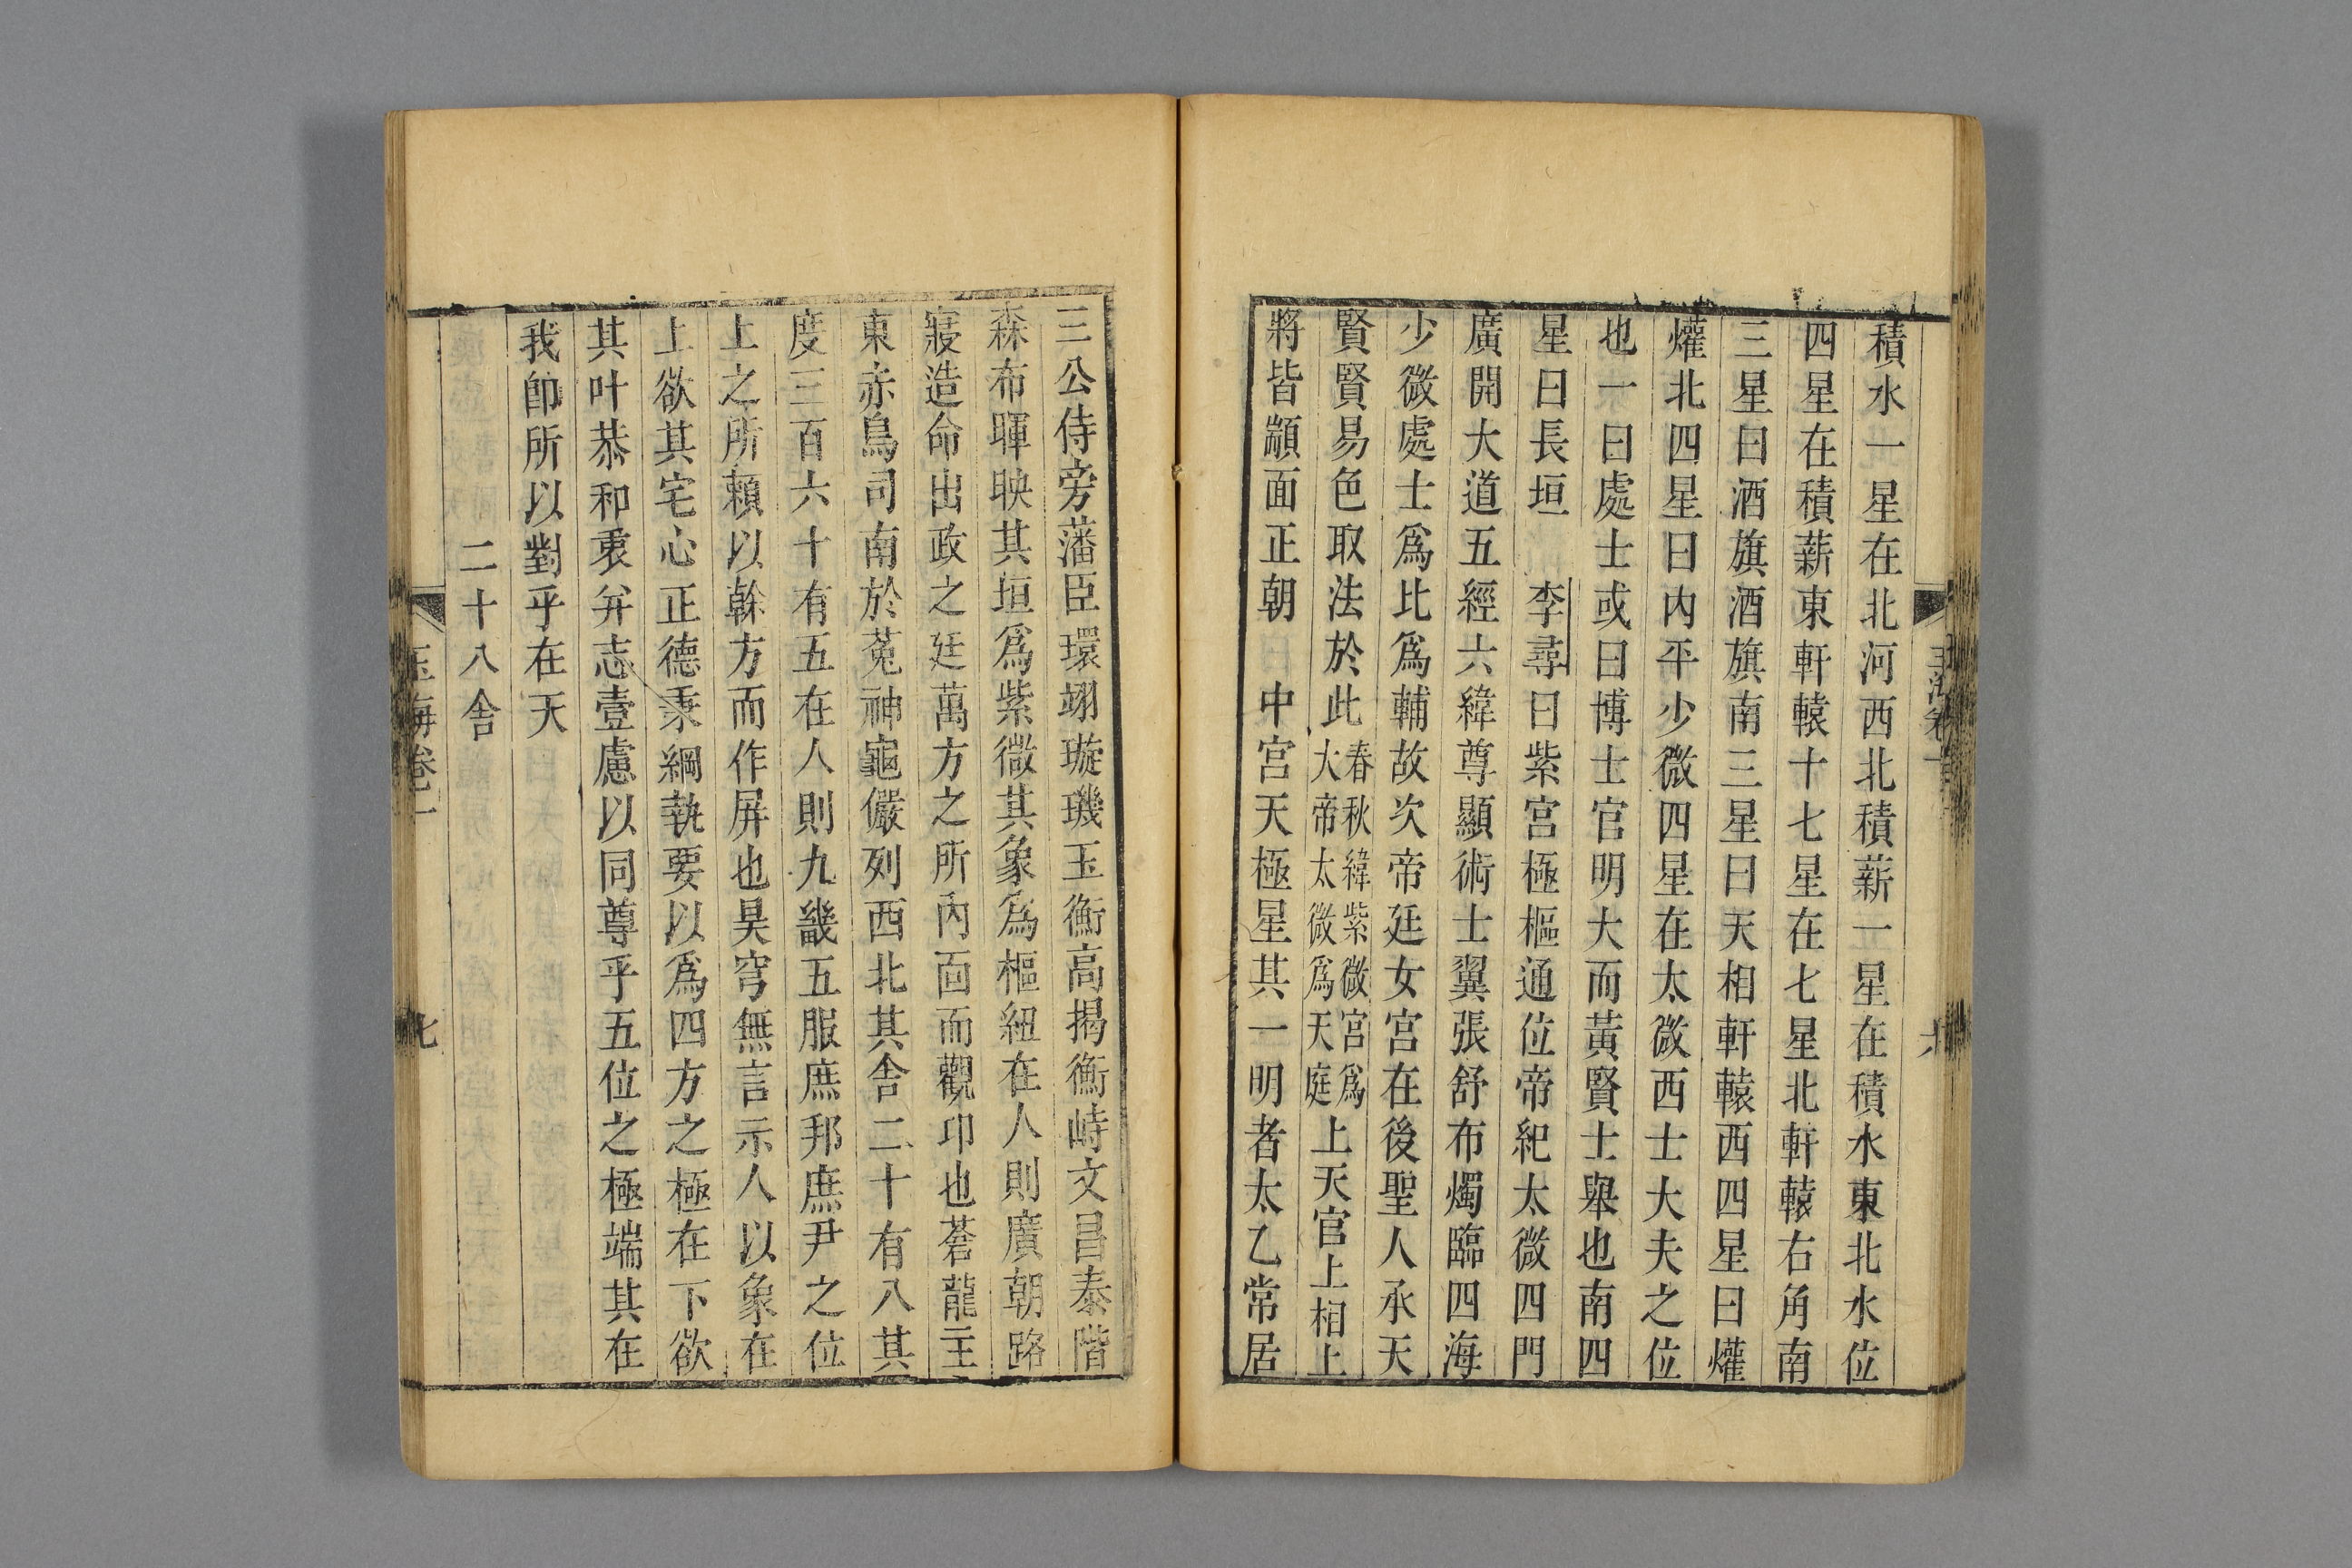 積水一星在北河西北積薪一星在積水東北水位
四星在積薪東軒轅十七星在七星北軒轅右角南
三星曰酒旗酒旗南三星曰天相軒轅西四星曰爟
爟北四星曰内平少微四星在太微西士大夫之位
也一曰處士或曰博士官明大而黃賢士舉也南四
星曰長垣 李尋曰紫宮極樞通位帝紀太微四門
廣開大道五經六緯尊顯術士翼張舒布燭臨四海
少微處士爲比爲輔故次帝廷女宮在後聖人承天
賢賢易色取法於此春秋緯紫微宮爲大帝太微爲天庭上天官上相上
將皆顓面正朝 中宮天極星其一明者太乙常居
三公侍旁藩臣環翊璇璣玉衡高揭衡峙文昌泰階
森布暉映其垣爲紫微其象爲樞紐在人則廣朝路
寢造命出政之廷萬方之所內面而觀卬也蒼龍主
東赤鳥司南於菟神龜儼列西北其舍二十有八其
度三百六十有五在人則九畿五服庶邦庶尹之位
上之所賴以榦方而作屏也昊穹無言示人以象在
上欲其宅心正德秉綱執要以爲四方之極在下欲
其叶恭和衷弁志壹慮以同尊乎五位之極端其在
我卽所以對乎在天
二十八舍
玉海卷二
七